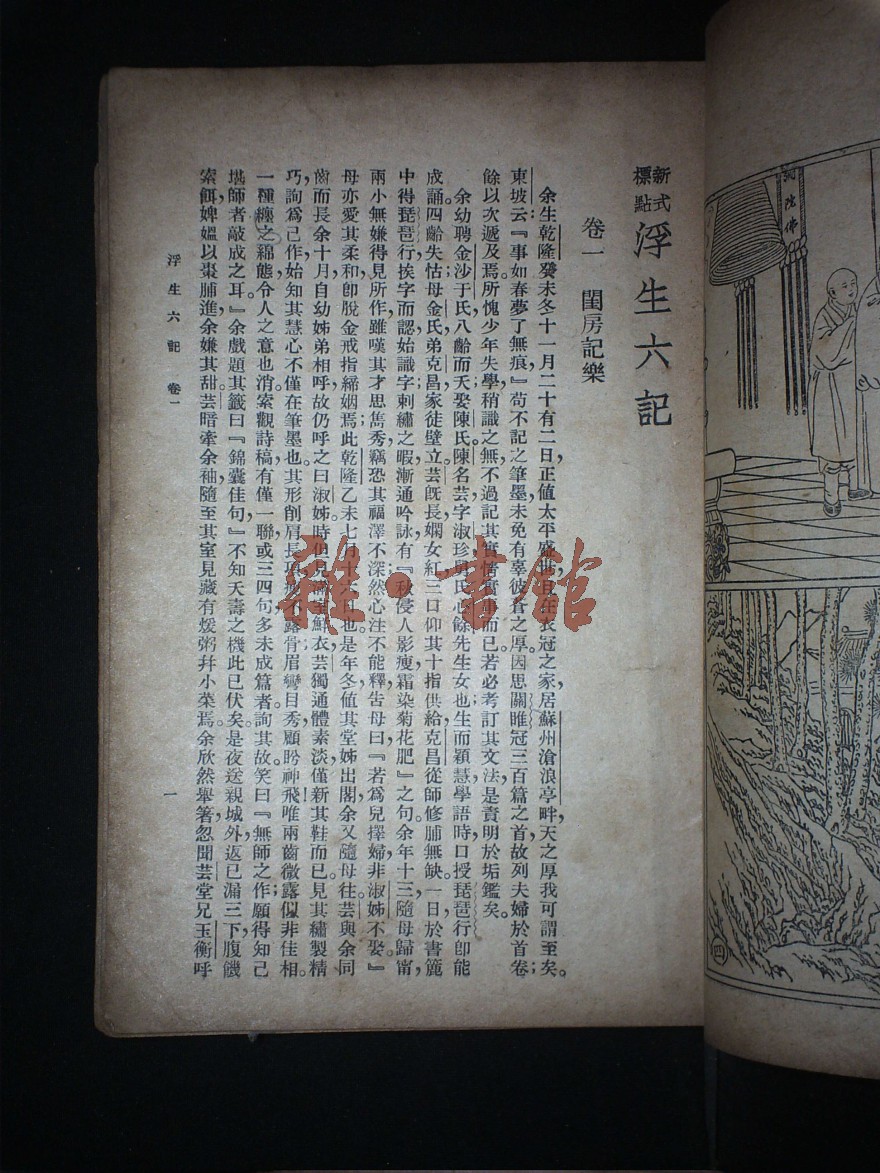 陀佛
四
新式標點
浮生六記
卷一 閨房記樂
余生乾隆癸未冬十一月二十有二日，正值太平盛世，且在衣冠之家，居蘇州滄浪亭畔，天之厚我，可謂至矣。
東坡云『事如春夢了無痕』苟不記之筆墨，未免有辜彼蒼之厚；因思關雎冠三百篇之首，故列夫婦於首卷；
餘以次遞及焉。所愧少年失學，稍識之無，不過記其實情實事而已。若必考訂其文法，是責明於垢鑑矣。
余幼聘金沙于氏，八齡而夭；娶陳氏。陳名芸，字淑珍，舅氏心餘先生女也。生而穎慧，學語時，口授琵琶行，卽能
成誦。四齡失怙；母金氏，弟克昌，家徒壁立。芸旣長，嫻女紅，三口仰其十指供給；克昌從師，修脯無缺。一日，於書簏
中得琵琶行，挨字而認，始識字；刺繡之暇，漸通吟詠，有『秋侵人影瘦，霜染菊花肥』之句。余年十三，隨母歸甯，
兩小無嫌，得見所作，雖嘆其才思雋秀，竊恐其福澤不深；然心注不能釋，告母曰『若爲兒擇婦，非淑姊不娶。』
母亦愛其柔和，卽脫金戒指締姻焉；此乾隆乙未七月十六日也。是年冬，值其堂姊出閣，余又隨母往。芸與余同
齒而長余十月，自幼姊弟相呼，故仍呼之曰淑姊。時但見滿室鮮衣，芸獨通體素淡，僅新其鞋而已。見其繡製精
巧，詢爲己作，始知其慧心不僅在筆墨也。其形削肩長項，瘦不露骨，眉彎目秀，顧盼神飛，唯兩齒微露，似非佳相。
一種纏綿之態，令人之意也消。索觀詩稿，有僅一聯，或三四句，多未成篇者。詢其故，笑曰『無師之作，願得知己
堪師者敲成之耳。』余戲題其籤曰『錦囊佳句』不知夭壽之機，此已伏矣。是夜送親城外，返已漏三下，腹饑
索餌，婢嫗以棗脯進，余嫌其甜。芸暗牽余袖，隨至其室，見藏有煖粥并小菜焉。余欣然舉箸，忽聞芸堂兄玉衡呼
浮生六記 卷一
一
雜·書館